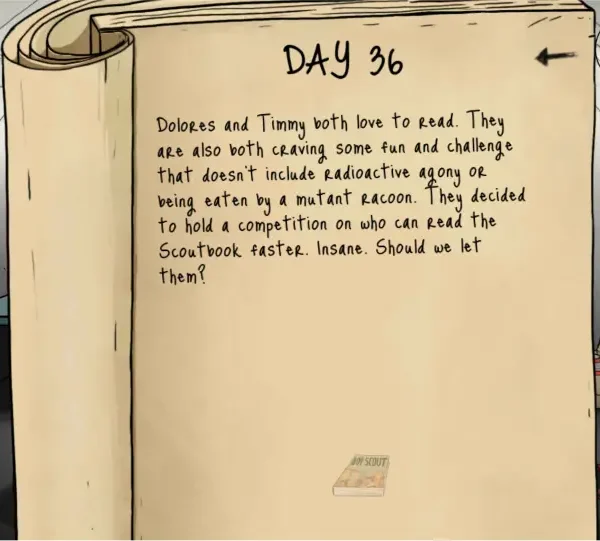 DAY 36
Dolores and Timmy both love to read. They
are also both craving some fun and challenge
that doesn't include radioactive agony or
being eaten by a mutant racoon. They decided
to hold a competition on who can read the
Scoutbook faster. Insane. Should we let
them?
SCOUT